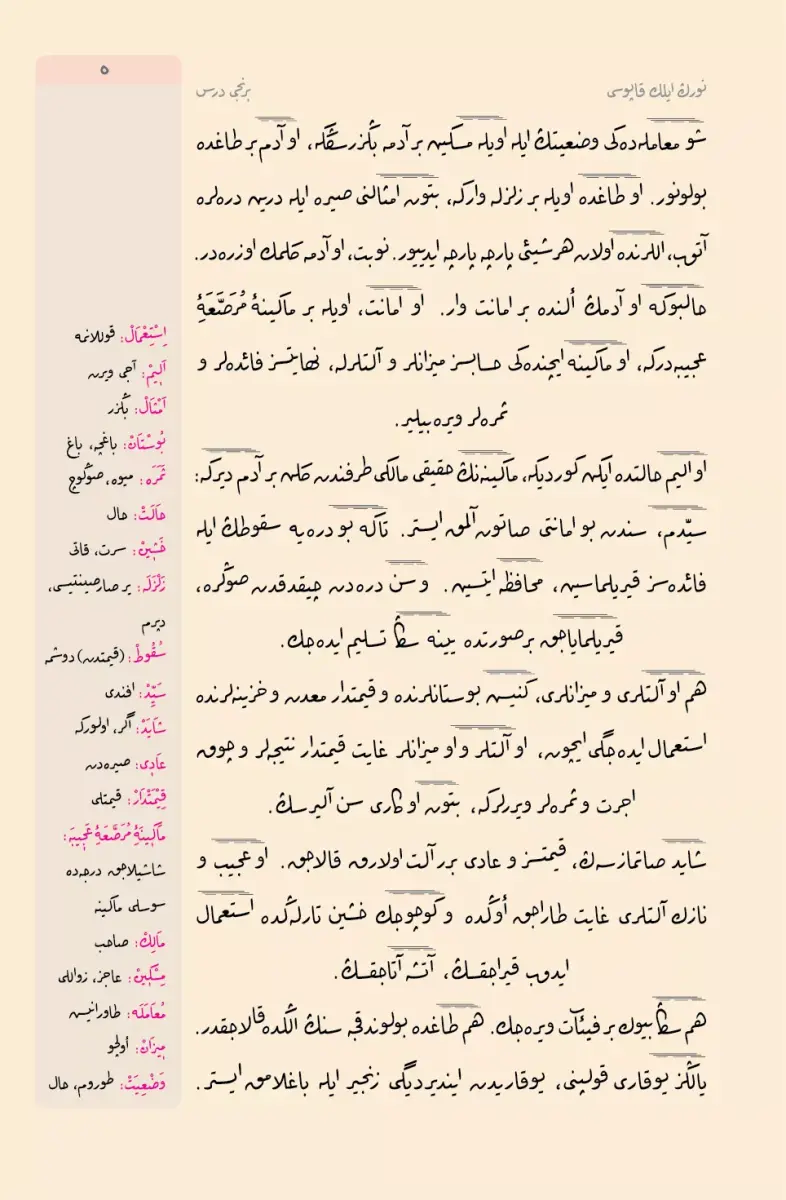 ٥
نورڭ ايلك قاپوسى
برنجى درس
شو معامله‌ده‌كى وضعيتڭ ايله اويله مسكين بر آدمه بڭزرسڭكه، او آدم بر طاغده
بولونور. او طاغده اويله بر زلزله واركه، بتون امثالنى صيره ايله درين دره‌لره
آتوب، اللرنده اولان هر شيئى پارچه پارچه ايدييور. نوبت، او آدمه كلمك اوزره‌در.
حالبوكه او آدمڭ ألنده بر امانت وار. او امانت، اويله بر ماكينهٔ مُرَصَّعَهٔ
عجيبه‌دركه، او ماكينه ايچنده‌كى حسابسز ميزانلر و آلتلرله، نهايتسز فائده‌لر و
ثمره‌لر ويره‌بيلير.
او اليم حالتده ايكن كورديكه، ماكينه‌نڭ حقيقى مالكى طرفندن كلن بر آدم ديركه:
سيّدم، سندن بو امانتى صاتون آلمق ايستر. تاكه بو دره‌يه سقوطڭ ايله
فائده‌سز قيريلماسين، محافظه ايتسين. و سن دره‌دن چيقدقدن صوڭره،
قيريلماياجق بر صورتده يينه سڭا تسليم ايده‌جك.
هم او آلتلرى و ميزانلرى، كنيس بوستانلرنده و قيمتدار معدن و خزينه‌لرنده
استعمال ايده‌جگى ايچون، او آلتلر و او ميزانلر غايت قيمتدار نتيجه‌لر و چوق
اجرت و ثمره‌لر ويررلركه، بتون او كارى سن آليرسڭ.
شايد صاتمازسه‌ڭ، قيمتسز و عادى بر آلت اولارق قالاجق. او عجيب و
نازك آلتلرى غايت طاراجق أوڭده و كوچوجك خشين تارله‌ڭده استعمال
ايدوب قيراجقسڭ، آتشه آتاجقسڭ.
هم سڭا بيوك بر فيئات ويره‌جك. هم طاغده بولوندقجه سنڭ الڭده قالاجقدر.
يالڭز يوقارى قولپنى، يوقاريدن اينديرديگى زنجير ايله باغلامق ايستر.
اِسْتِعْمَالْ: قوللانمه
اَلِيمْ: آجى ويرن
اَمْثَالْ: بڭزر
بُوسْتَانْ: باغچه، باغ
ثَمَرَه: ميوه، صوڭوچ
حَالَتْ: حال
خَشِينْ: سرت، قاتى
زَلْزَلَه: ير صارصينتيسى،
ديرم
سُقُوطْ: (قيمتدن) دوشمه
سَيِّدْ: افندى
شَايَدْ: اگر، اولوركه
عَادِى: صيره‌دن
قِيْمَتْدَارْ: قيمتلى
مَاكِينَهٔ مُرَصَّعَهٔ عَجِيبَه:
شاشيلاجق درجه‌ده
سوسلى ماكينه
مَالِكْ: صاحب
مِسْكِينْ: عاجز، زواللى
مُعَامَلَه: طاورانيس
مِيزَانْ: أولچو
وَضْعِيَتْ: طوروم، حال